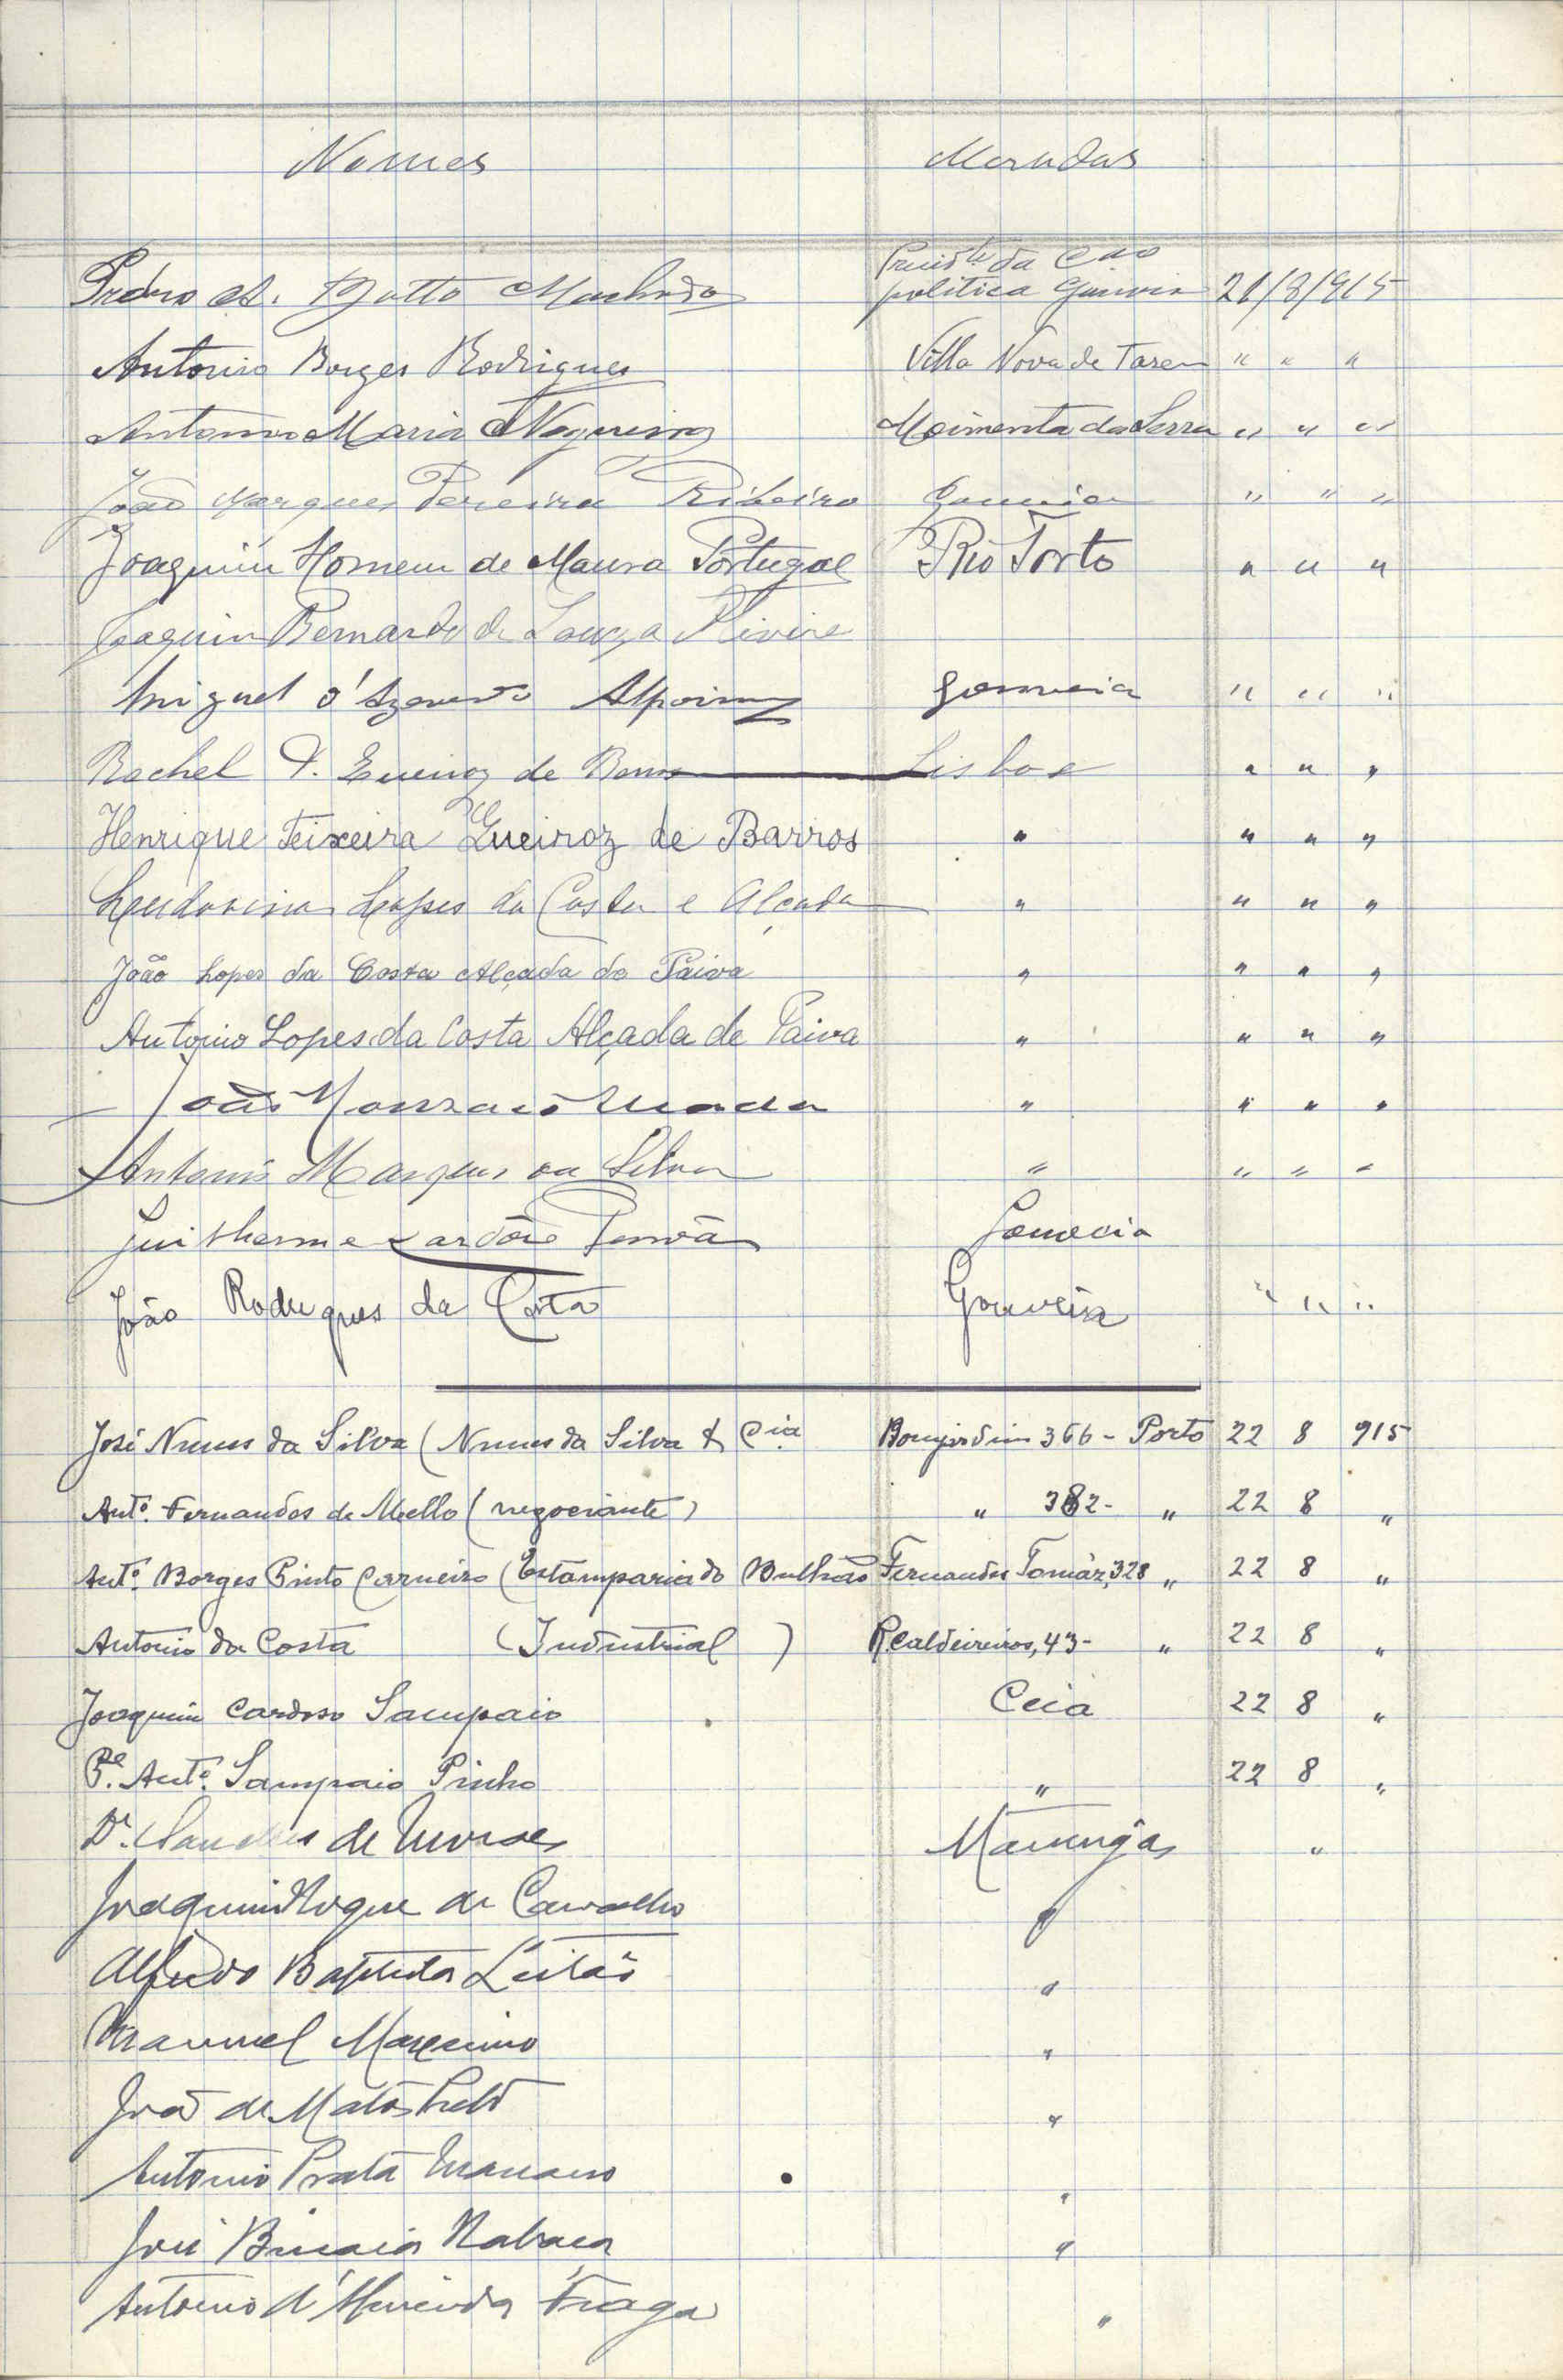 Nomes Moradas
Presid.te da C.ão
Pedro A. Botto Machado politica Gouveia 21/8/915
Antonio Borges Rodrigues Villa Nova de Tazem " " "
Antonio Maria Nogueira Moimenta da Serra " " "
João Marques Pereira Ribeiro Gouveia " " "
Joaquim Homem de Moura Portugal Rio Torto " " "
Joaquim Bernardo de Souza
Miguel d'Azevedo Alpoim Gouveia " " "
Rachel T. Queiroz de Barros Lisboa " " "
Henrique Teixeira Queiroz de Barros " " " "
Ludovina Lopes da Costa e Alçada " " " "
João Lopes da Costa Alçada de Paiva " " " "
Antonio Lopes da Costa Alçada de Paiva " " " "
João " " " "
Antonio Marques da Silva " " " "
Guilherme Gouveia
João Rodrigues da Costa Gouveia " " "
José Nunes da Silva (Nunes da Silva & Cia Bomjardim 366 - Porto 22 8 915
Antº. Fernandes de Mello (negociante) " 382 - " 22 8 "
Antº. Borges Pinto Carneiro (Estamparia do Bulhão Fernandes Tomáz, 328 " 22 8 "
Antonio da Costa (Industrial) R. Caldeireiros, 43 - " 22 8 "
Joaquim Cardoso Sampaio Ceia 22 8 "
Pe. Antº. Sampaio Pinho " 22 8 "
Dr. de Moraes Manteigas "
Joaquim Roque de Carvalho "
Alfredo Baptista Leitão "
Manuel Maximino "
João de Matos "
Antonio Prata "
José Nabaes "
Antonio d'Almeida Fraga "